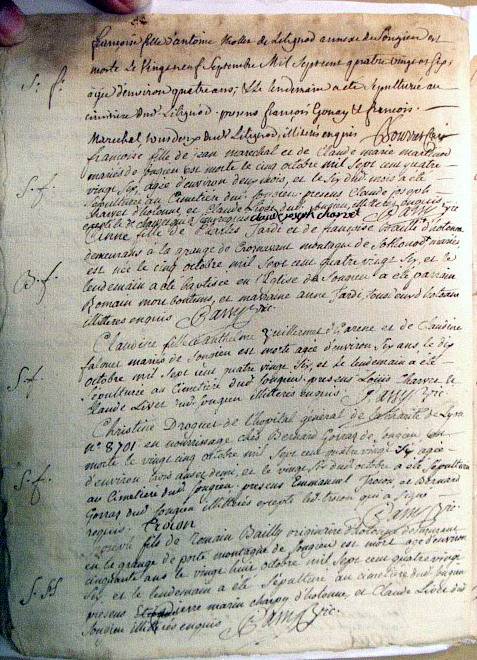 françoise fille d'antoine Mollex de Lilignod annexe de Songieu est
morte Le Vingt neuf Septembre Mil Sept cent quatre vingt six
S. f. agée d'environ quatre ans; & Le lendemain a eté Sepulture au
cimitiere dud Lilignod. presens françois Gonay & francois
Marechal tous deux dud Lilignod, illiterés enquis
françoise fille de jean marechal et de Claude marie
mariés de Songieu est morte le cinq octobre mil Sept cent quatre
S. f. vingt Six, agée d'environ deux mois, et le Six dud mois a eté
Sepulturée au Cimetiere dud Songieu, presens Claude joseph
charvet d'hotonne et Claude dud Songieu, illiterés enquis
excepté led charvet claude joseph charvet Vic
anne fille de Charles Jardi et de françoise Bailli d'hotonne
demeurants à la grange de montagne de mariés
B. f. est née le cinq octobre mil Sept cent quatre vingt Six, et le
lendemain a eté baptisée en l'Eglise de Songieu a eté parrain
Romain more et marraine anne Jardi, tous deux d'hotonne
illiterés enquis Vic.
Claudine fille d'anthelme Guillermet et de Claudine
mariés de Songieu est morte agée d'environ Six ans le dix
octobre mil Sept cent quatre vingt Six, et le lendemain a eté
S. f. Sepulturée au cimetiere dud Songieu, presens Louis Charvet et
Claude Livet dud Songieu illiterés enquis Vic.
Christine Droguet de l'hôpital général de la Charité de Lyon
n° 8701 en nourrissage chès Bernard Gorras de Songieu est
morte le vingt cinq octobre mil Sept cent quatre vingt Six agée
S. f. d'environ trois ans et demi, et le vingt Six dud octobre a eté Sepulturée
au Cimetiere dud Songieu, presens Emmanuel troson et Bernard
Gorras dud Songieu illiterés excepté led troson qui a Signé
requis. troson Vic
Joseph fils de Romain Bailly originaire d'hotonne demeurant
en la grange de porte montagne de Songieu est mort agé d'environ
cinquante ans le vingt huit octobre mil Sept cent quatre vingt
Six et le lendemain a eté Sepulturé au cimetiere dud Songieu
presens pierre marin d'hotonne, et Claude dud
Songieu illiterés enquis Vic.